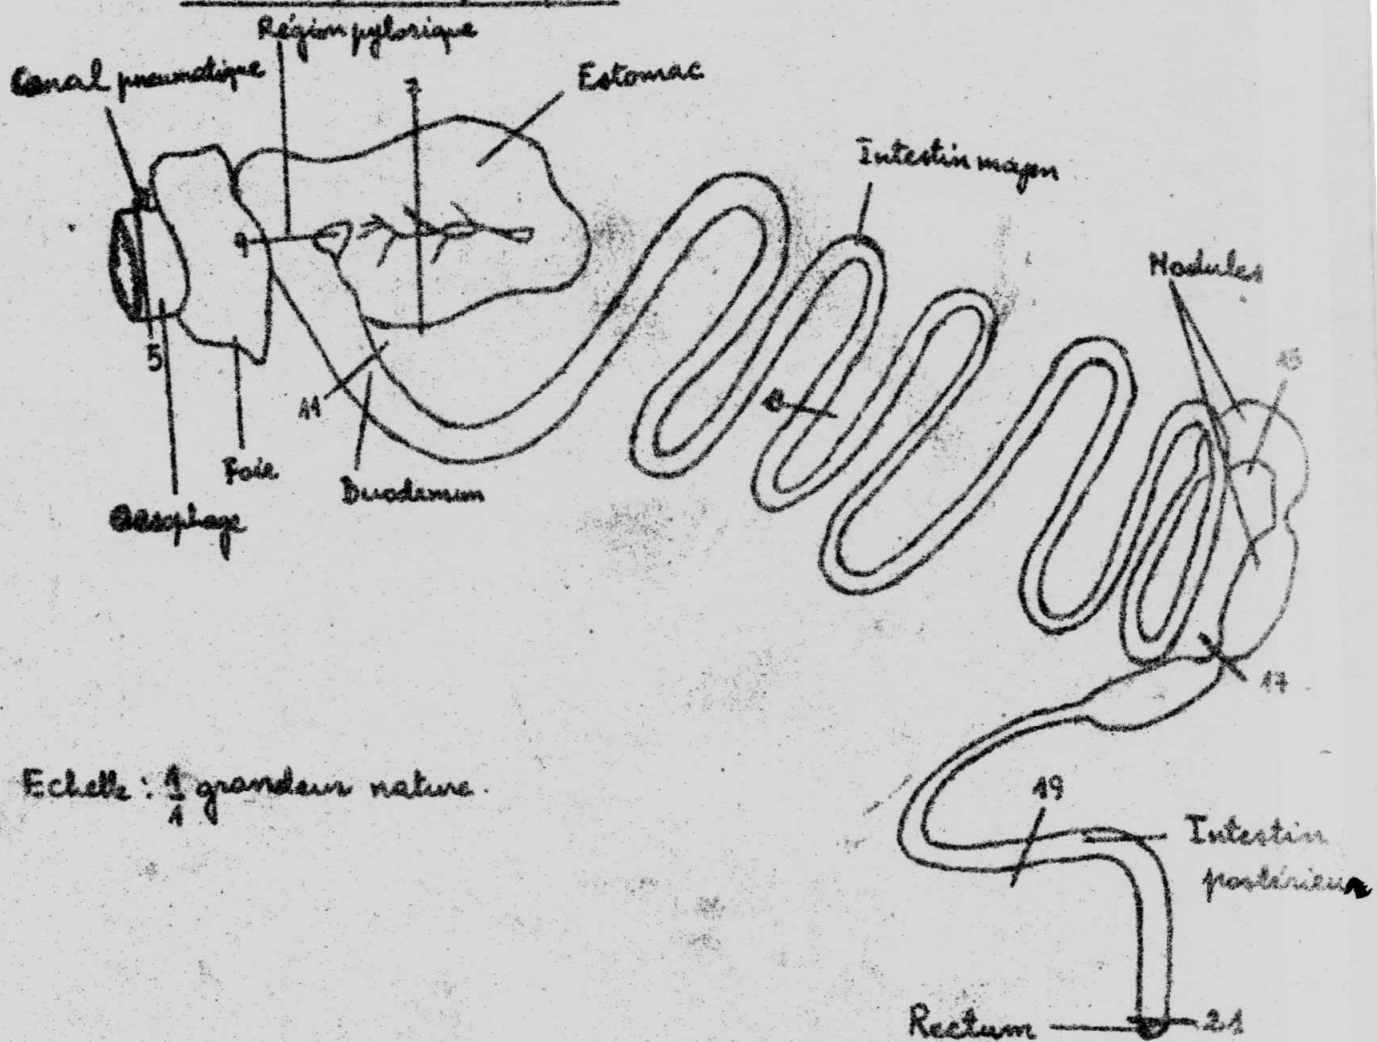 Région pylorique
Canal pneumatique
Estomac
7
Intestin moyen
Nodules
15
9
5
11
Foie
Duodenum
Oesophage
17
Echelle : 1/1 grandeur nature.
19
Intestin
postérieur
Rectum
21